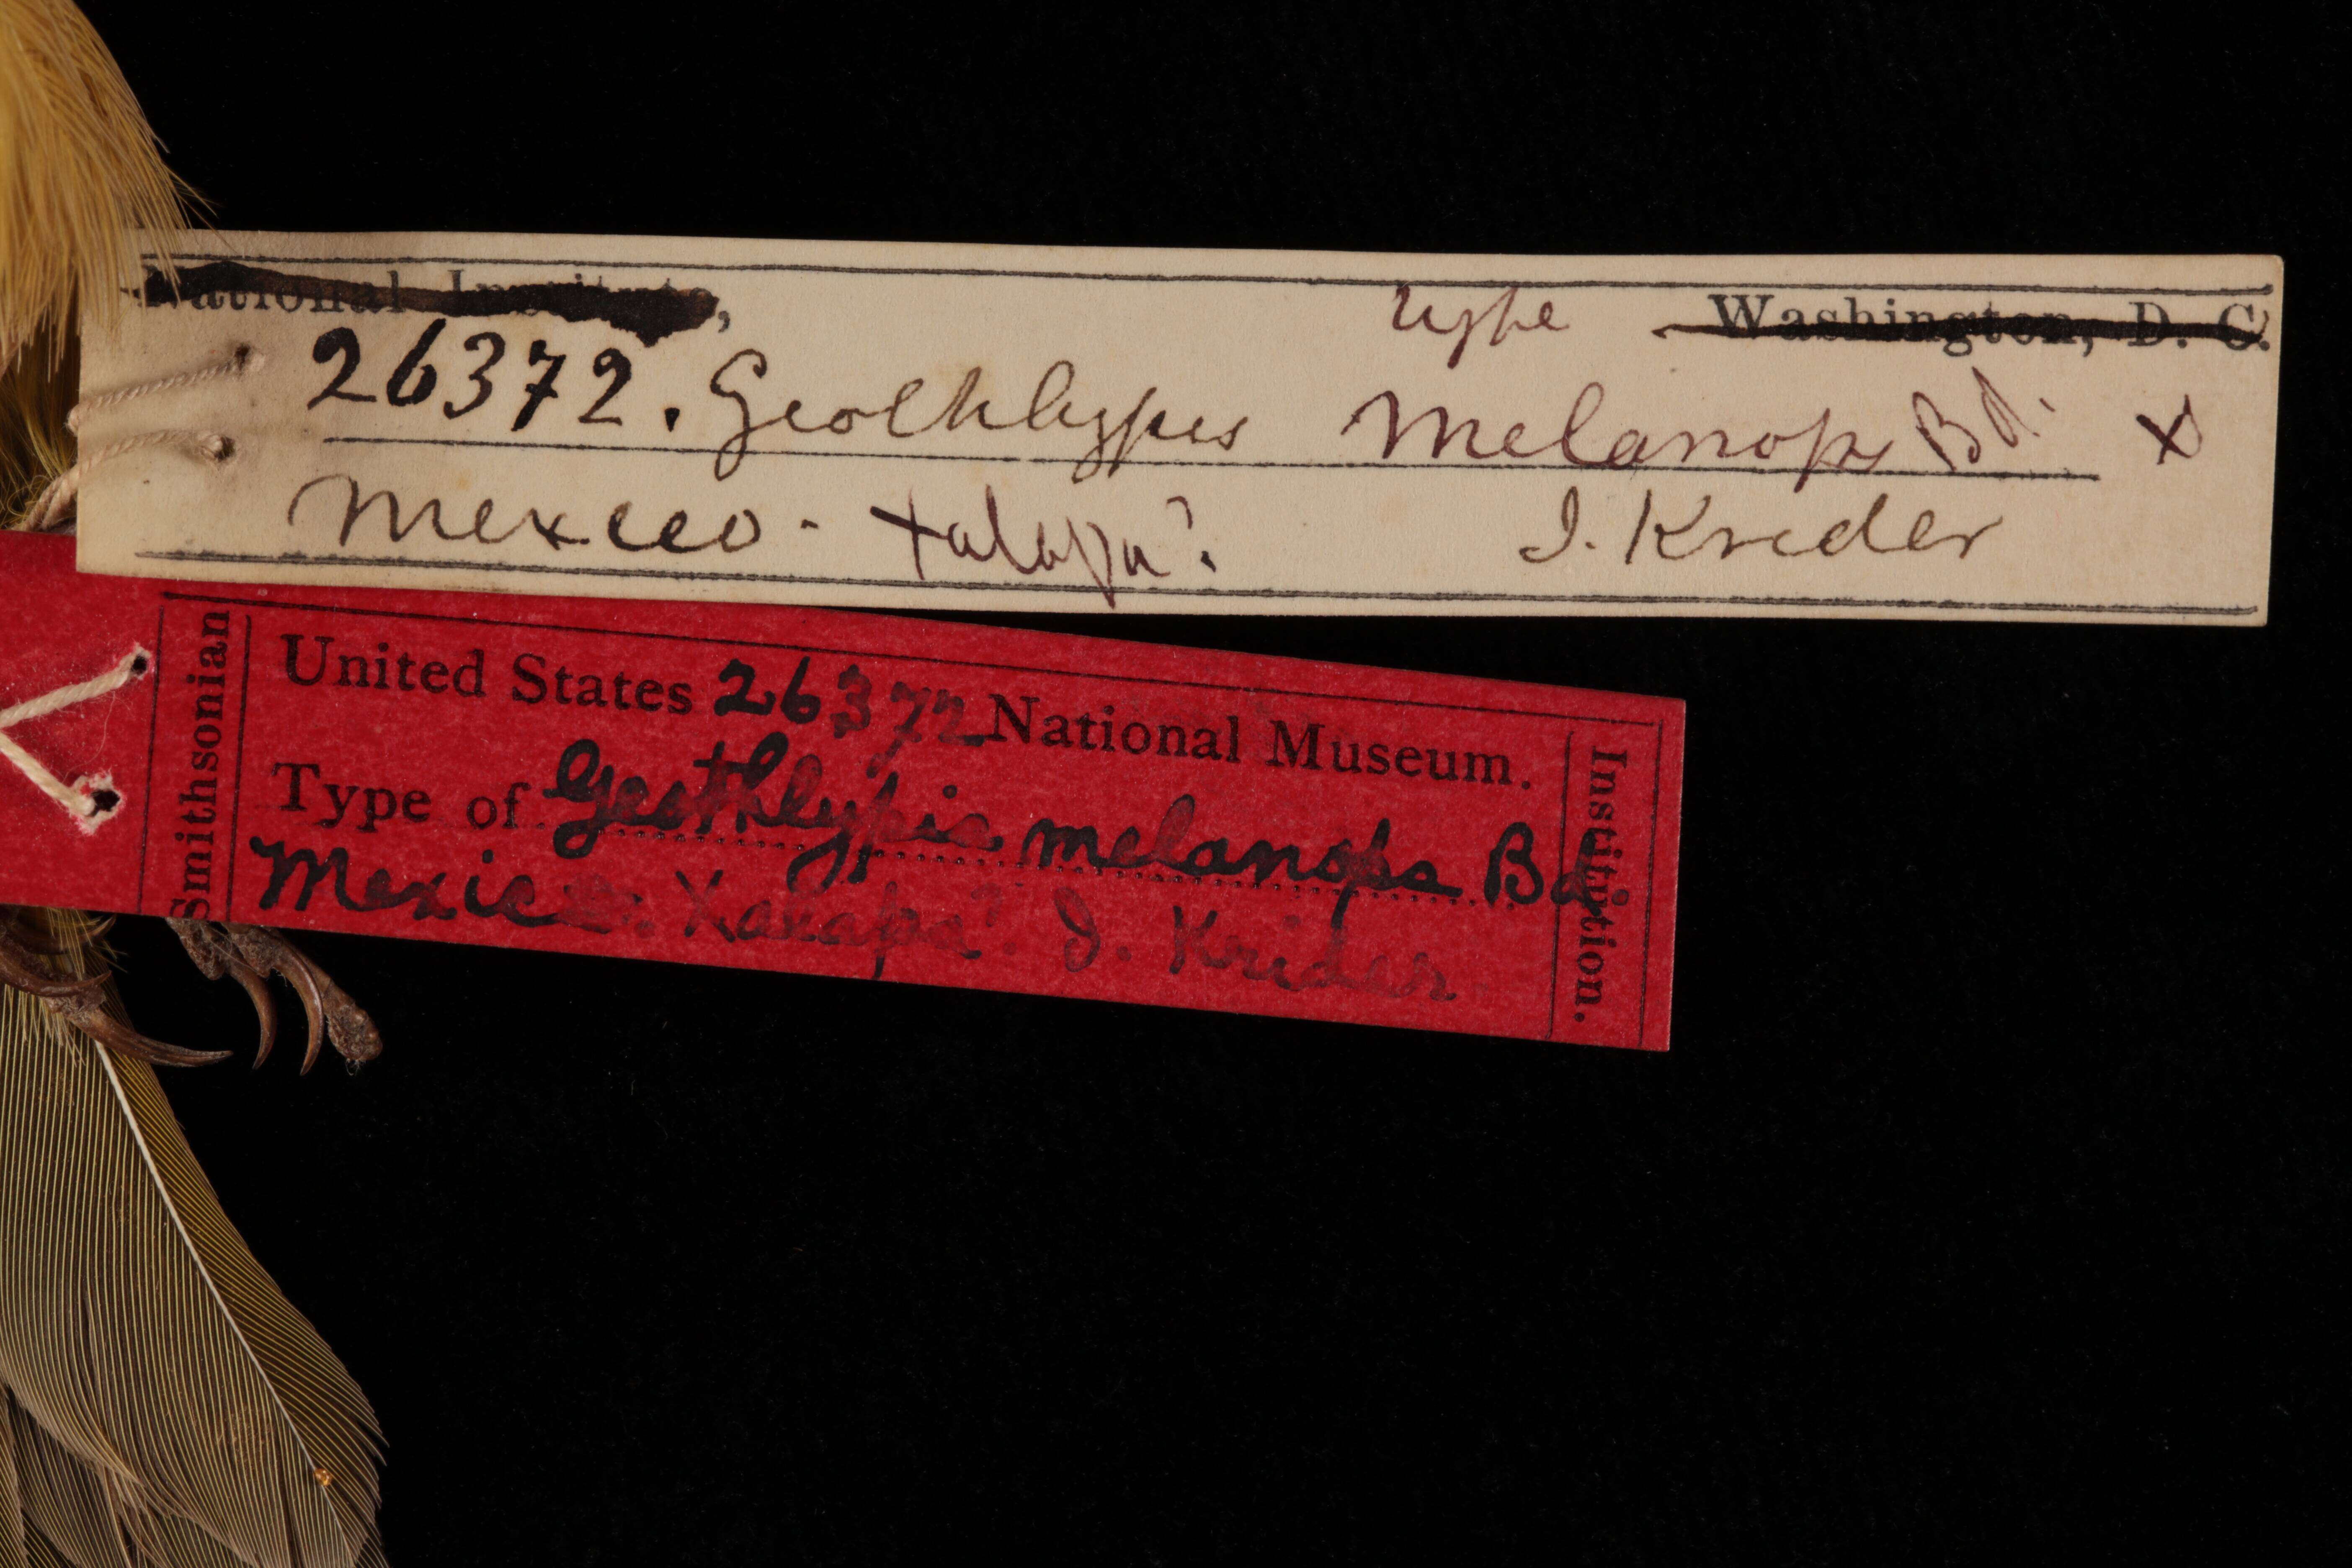 National Institute,
type Washington, D. C.
26372. Geothlypis Melanops Bd. x
Mexico - Xalapa? J. Krider
Smithsonian
United States 26372 National Museum.
Type of Geothlypis melanops Bd.
Mexico. Xalapa? J. Krider.
Institution.